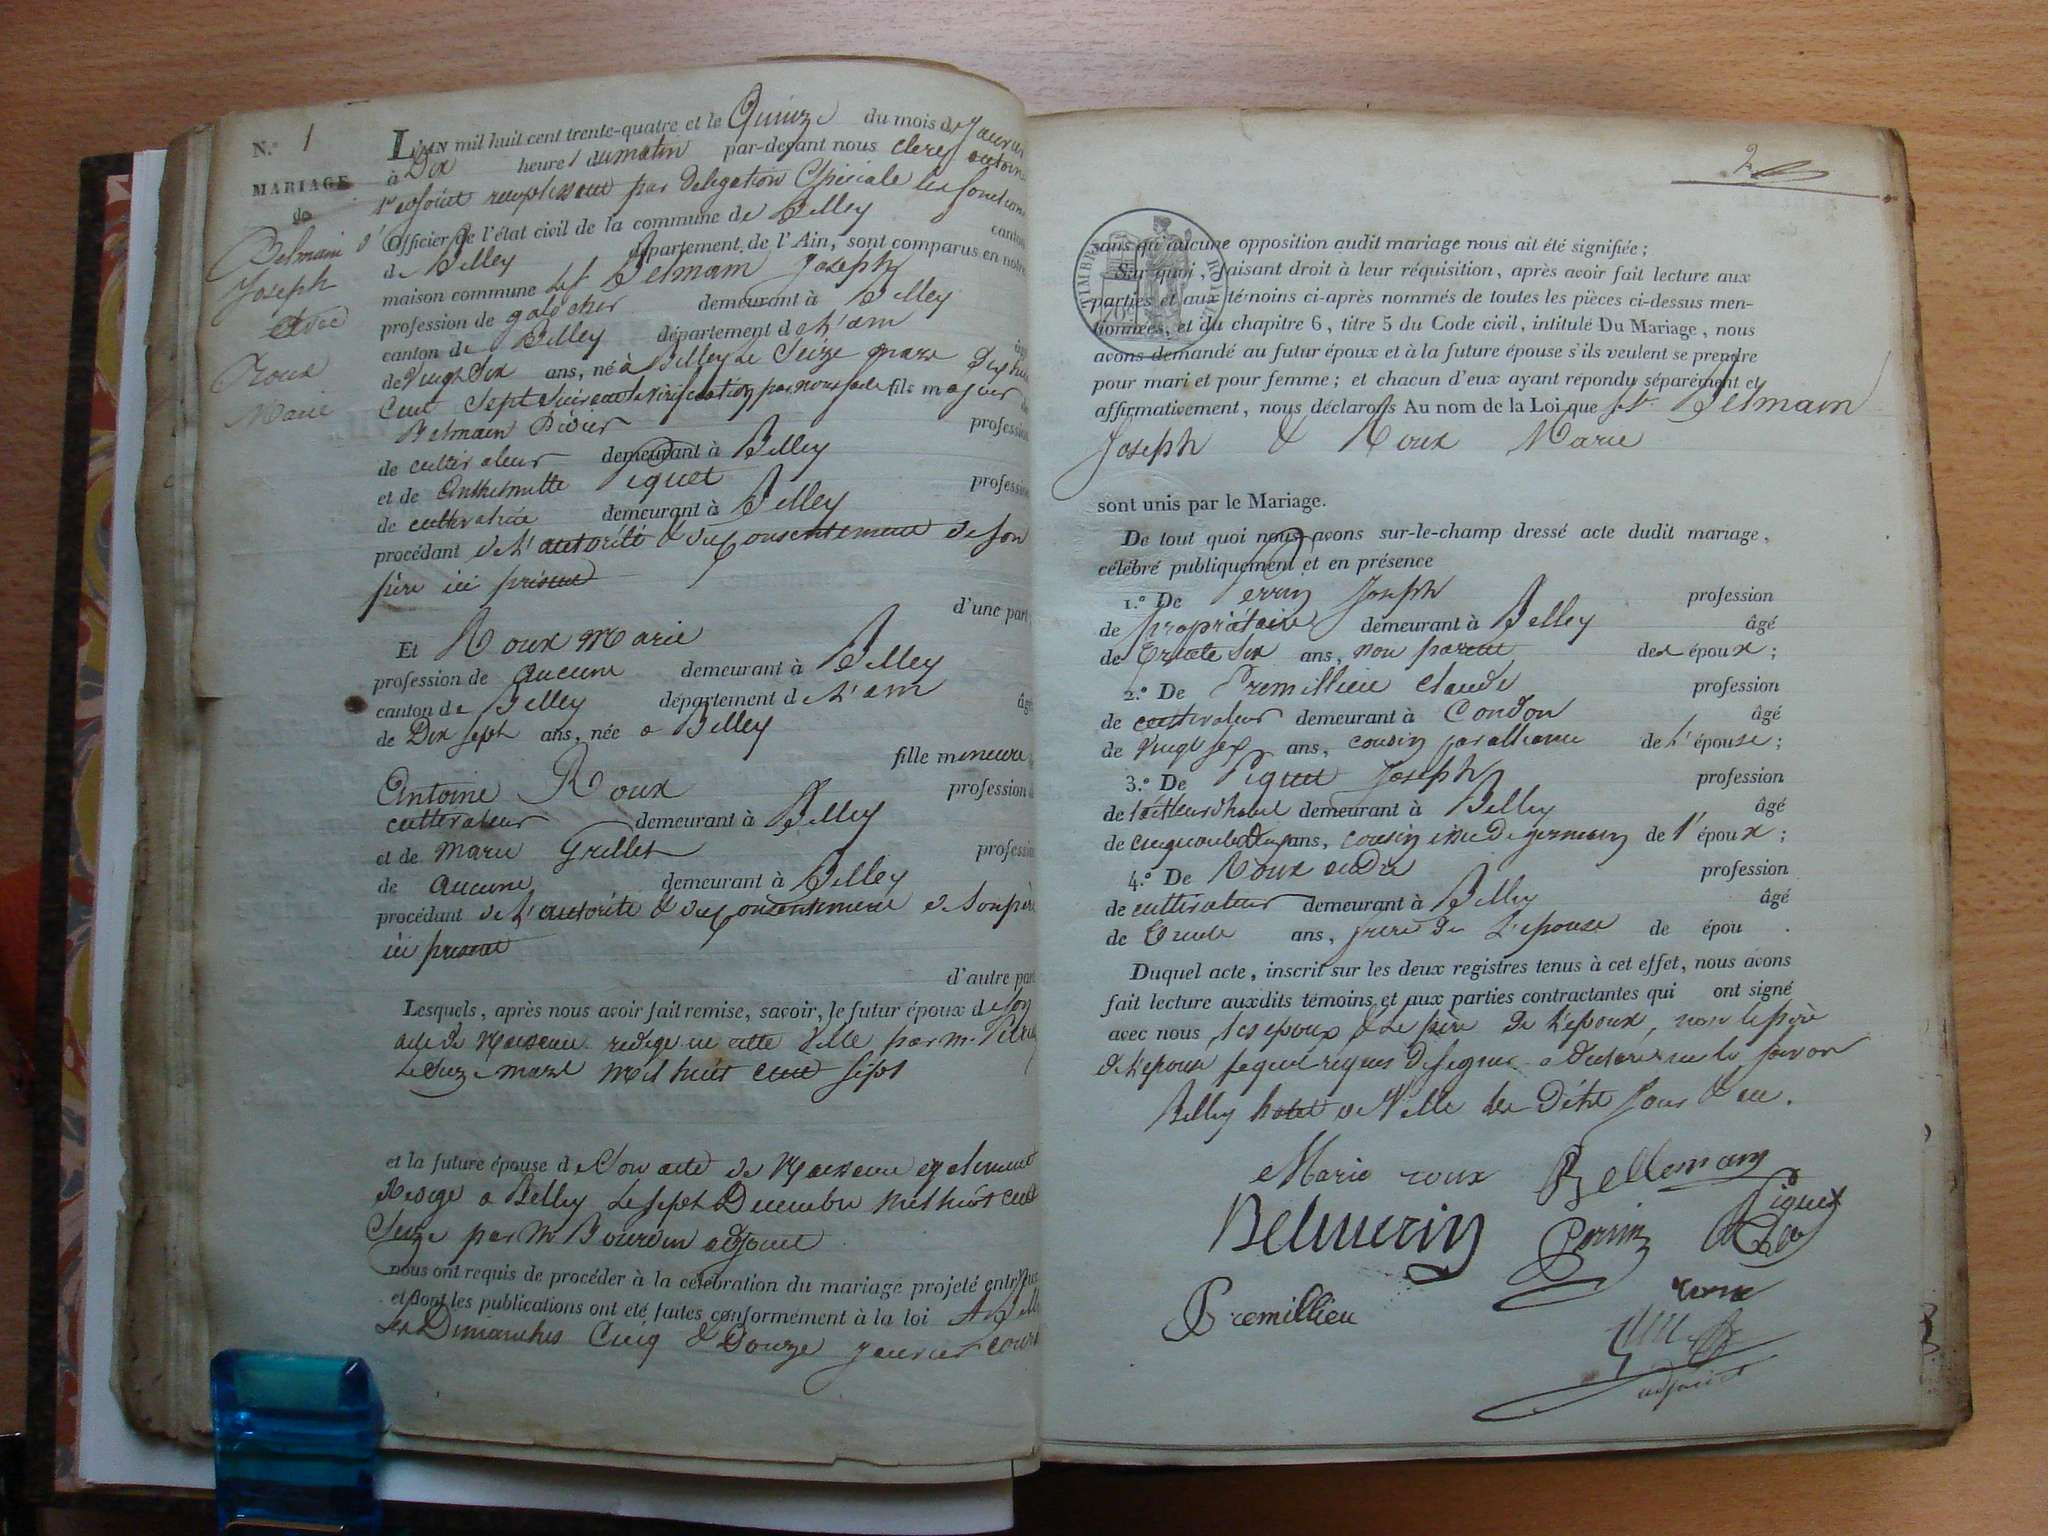 N.º 1
MARIAGE
de
Belmain
Joseph
et
Roux
Marie
L'AN mil huit cent trente-quatre et le Quinze du mois de Janvier
à Dix heures du matin par-devant nous Clerc antoine
1er adjoint remplissant par delegation Spéciale les fonctions
d'Officier de l'état civil de la commune de Belley canton
de Belley département de l'Ain, sont comparus en notre
maison commune le Sr Belmain Joseph
profession de galocher demeurant à Belley
canton de Belley département de L'ain âgé
de Vingt Six ans, né à Belley le Seize mars Dix huit
Cent Sept Suivant la vérification par nous faite fils majeur de
Belmain Didier profession
de cultivateur demeurant à Belley
et de Anthelmette Piquet profession
de cultivatrice demeurant à Belley
procédant de L'autorité & du Consentement de Son
père ici présent
d'une part
Et Roux Marie
profession de aucune demeurant à Belley
canton de Belley département de L'ain âgée
de Dix sept ans, née a Belley
fille mineure
Antoine Roux profession de
cultivateur demeurant à Belley
et de Marie Grillet profession
de aucune demeurant à Belley
procédant de L'autorité & du Consentement de Son père
ici présent
d'autre part
Lesquels, après nous avoir fait remise, savoir, le futur époux de Son
acte de Naissance redigé en cette Ville par Mr
Le Seize mars mil huit cent Sept
et la future épouse de Son acte de Naissance également
Redigé a Belley Le sept Decembre mil huit cent
Seize par Mr Bourdin adjoint
nous ont requis de procéder à la célébration du mariage projeté entr'eux
et dont les publications ont été faites conformément à la loi
les Dimanches Cinq & Douze Janvier courant
2
TIMBRE ROYAL
70
sans qu'aucune opposition audit mariage nous ait été signifiée;
Sur quoi, faisant droit à leur réquisition, après avoir fait lecture aux
parties et aux témoins ci-après nommés de toutes les pièces ci-dessus men-
tionnées, et du chapitre 6, titre 5 du Code civil, intitulé Du Mariage, nous
avons demandé au futur époux et à la future épouse s'ils veulent se prendre
pour mari et pour femme; et chacun d'eux ayant répondu séparément et
affirmativement, nous déclarons Au nom de la Loi que le Sr Belmain
Joseph & Roux Marie
sont unis par le Mariage.
De tout quoi nous avons sur-le-champ dressé acte dudit mariage,
célébré publiquement et en présence
1.º De Perrin Joseph profession
de propriétaire demeurant à Belley âgé
de Trente Six ans, non parent des époux;
2.º De Premillieu Claude profession
de cultivateur demeurant à Condon âgé
de Vingt six ans, cousin par alliance de L'épouse;
3.º De Piquet Joseph profession
de tailleur d'habit demeurant à Belley âgé
de cinquante deux ans, cousin issu de germain de l'époux;
4.º De Roux andré profession
de cultivateur demeurant à Belley âgé
de Trente ans, frere de L'epouse de épou .
Duquel acte, inscrit sur les deux registres tenus à cet effet, nous avons
fait lecture auxdits témoins et aux parties contractantes qui ont signé
avec nous, les epoux & Le père de L'epoux, non le père
de L'epouse pequel requis de signer a declaré ne le savoir
Belley hotel de Ville les Dits Jour & an.
Marie roux Bellemain
Belmein Perrin Piquet
Premillieu roux
adjoint